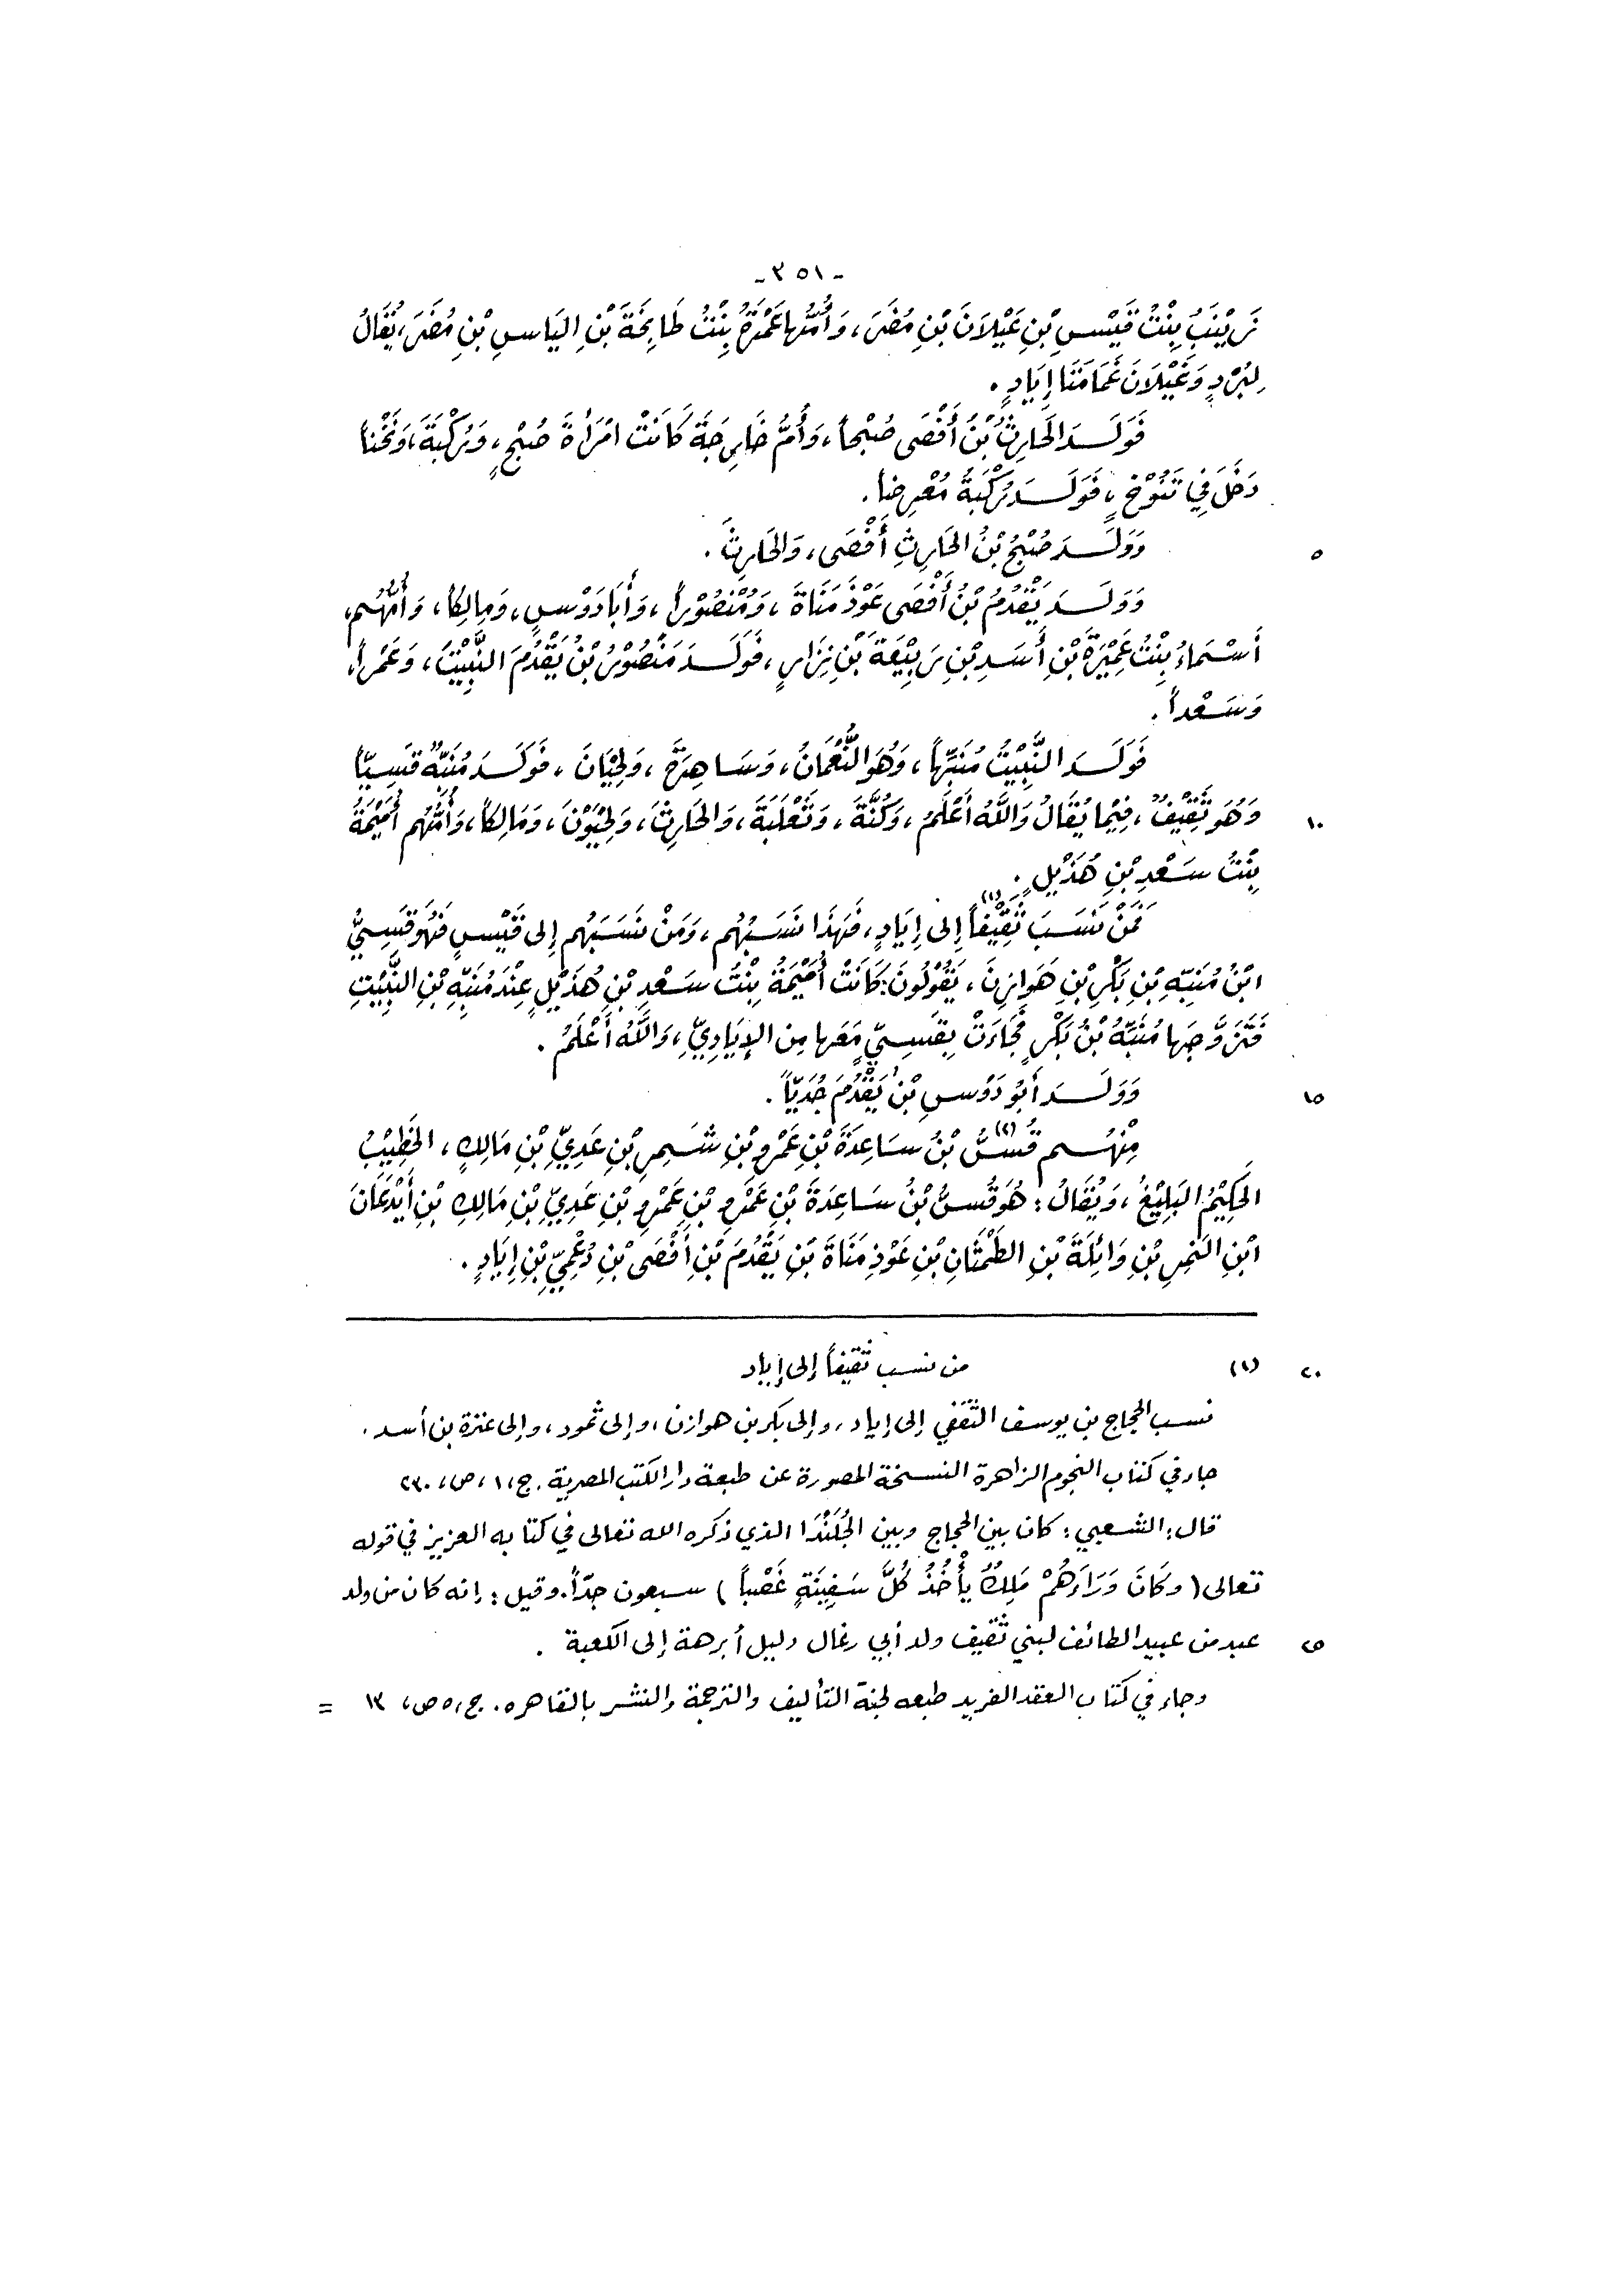 - ٣٥١ -
زَيْنَبُ بِنْتُ قَيْسِ بْنِ عَيْلَانَ بْنِ مُضَرَ، وَأُمُّها عَمْرَةُ بِنْتُ طَابِخَةَ بْنِ اليَاسِ بْنِ مُضَرَ، يُقَالُ
لِبُرْدٍ وَغَيْلَانَ غَمَامَتَا إِيَادٍ.
فَوَلَدَ الحَارِثُ بْنُ أَفْصَى صُبْحاً، وَأُمُّ خَارِجَةَ كَانَتْ امْرَأةَ صُبْحٍ، وَبُرْكَبَةَ، وَنُخْناً
دَخَلَ فِي تَنُوْخٍ، فَوَلَدَ بُرْكَبَةُ مُعْرِضاً.
٥ وَوَلَدَ صُبْحُ بْنُ الحَارِثِ أَفْصَى، وَالحَارِثَ.
وَوَلَدَ يَقْدُمُ بْنُ أَفْصَى عَوْذَ مَنَاةَ، وَمَنْصُوْراً، وَأَبَا دَوْسٍ، وَمالِكاً، وَأُمُّهُم
أَسْمَاءُ بِنْتُ عَمِيْرَةَ بْنِ أَسَدِ بْنِ رَبِيْعَةَ بْنِ نِزَارٍ، فَوَلَدَ مَنْصُوْرُ بْنُ يَقْدُمَ النَّبِيْتَ، وَعَمْراً،
وَسَعْداً.
فَوَلَدَ النَّبِيْتُ مُنَبِّهاً، وَهُوَ النُّعْمَانُ، وَسَاهِرَةَ، وَلِحْيَانَ، فَوَلَدَ مُنَبِّهٌ قَسِيّاً
١٠ وَهُوَ ثَقِيْفٌ، فِيْمَا يُقَالُ وَاللَّهُ أَعْلَمُ، وَكُنَّةَ، وَثَعْلَبَةَ، وَالحَارِثَ، وَلِحْيَوْنَ، وَمَالِكاً، وَأُمُّهُم أُمَيْمَةُ
بِنْتُ سَعْدِ بْنِ هُذَيْلٍ.
فَمَنْ نَسَبَ ثَقِيْفاً (١) إِلى إِيَادٍ، فَهَذَا نَسَبُهُم، وَمَنْ نَسَبَهُم إِلى قَيْسٍ فَهُوَ قَسِيُّ
ابْنُ مُنَبِّهِ بْنِ بَكْرِ بْنِ هَوَازِنَ، يَقُوْلُونَ: كَانَتْ أُمَيْمَةُ بِنْتُ سَعْدِ بْنِ هُذَيْلٍ عِنْدَ مُنَبِّهِ بْنِ النَّبِيْتِ
فَتَزَوَّجَها مُنَبِّهُ بْنُ بَكْرٍ فَجَاءَتْ بِقَسِيٍّ مَعَها مِن الإِيَادِيِّ، وَاللَّهُ أَعْلَمُ.
١٥ وَوَلَدَ أَبُو دَوْسِ بْنُ يَقْدُمَ جُدَيّاً.
مِنْهُم قُسُّ (٢) بْنُ سَاعِدَةَ بْنِ عَمْرِو بْنِ شَمِرِ بْنِ عَدِيِّ بْنِ مَالِكٍ، الخَطِيْبُ
الحَكِيْمُ البَلِيْغُ، وَيُقَالُ: هُوَ قُسُّ بْنُ سَاعِدَةَ بْنِ عَمْرِو بْنِ عَمْرِو بْنِ عَدِيِّ بْنِ مَالِكِ بْنِ أَيْدَعَانَ
ابْنِ النَّمِرِ بْنِ وَائِلَةَ بْنِ الطَّمْثَانِ بْنِ عَوْذِ مَنَاةَ بْنِ يَقْدُمَ بْنِ أَفْصَى بْنِ دُعْمِيِّ بْنِ إِيَادٍ.
٢٠ (١) من نسب ثقيفاً إلى إياد
نسب الحجاج بن يوسف الثقفي إلى إياد، وإلى بكر بن هوازن، وإلى ثمود، وإلى عنزة بن أسد.
جاء في كتاب النجوم الزاهرة النسخة المصورة عن طبعة دار الكتب المصرية. ج، ١، ص، ٢٣٠
قال: الشعبي: كان بين الحجاج وبين الجُلَنْدَا الذي ذكره الله تعالى في كتابه العزيز في قوله
تعالى (وكَانَ وَرَاءَهُمْ مَلِكٌ يأْخُذُ كُلَّ سَفِينَةٍ غَصْباً) سبعون جدّاً. وقيل: إنه كان من ولد
٢٥ عبد من عبيد الطائف لبني ثقيف ولد أبي رغال دليل أبرهة إلى الكعبة.
وجاء في كتاب العقد الفريد طبعه لجنة التأليف والترجمة والنشر بالقاهره. ج، ٥ ص، ١٣ =